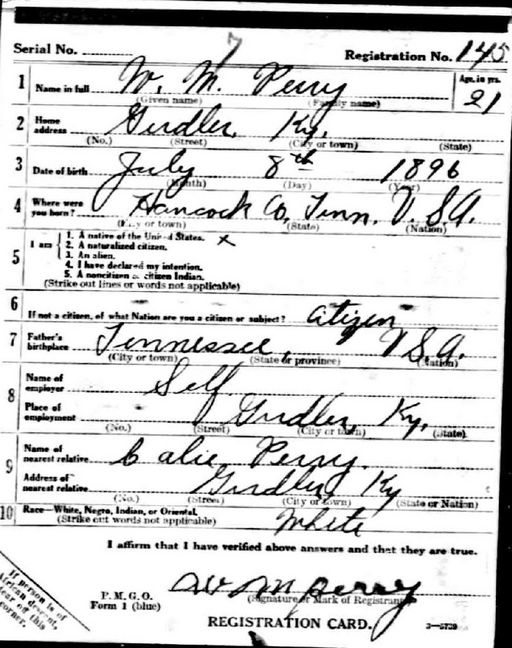 Serial No. 7 Registration No. 145
1 Name in full W. M. Perry Age, in yrs. 21
(Given name) (Family name)
2 Home address Girdler, Ky.
(No.) (Street) (City or town) (State)
3 Date of birth July 8th 1896
(Month) (Day) (Year)
4 Where were you born? Hancock Co, Tenn. U.S.A.
(City or town) (State) (Nation)
5 I am
1. A native of the United States. x
2. A naturalized citizen.
3. An alien.
4. I have declared my intention.
5. A noncitizen or citizen Indian.
(Strike out lines or words not applicable)
6 If not a citizen, of what Nation are you a citizen or subject? Citizen
7 Father's birthplace Tennessee, U.S.A.
(City or town) (State or province) (Nation)
8 Name of employer Self
Place of employment Girdler, Ky.
(No.) (Street) (City or town) (State)
9 Name of nearest relative Calie Perry.
Address of nearest relative Girdler, Ky
(No.) (Street) (City or town) (State or Nation)
10 Race—White, Negro, Indian, or Oriental.
(Strike out words not applicable) White
I affirm that I have verified above answers and that they are true.
W M Perry
P. M. G. O.
Form 1 (blue) (Signature or Mark of Registrant)
REGISTRATION CARD. 3—5729
If person is of
African descent,
tear off this
corner.